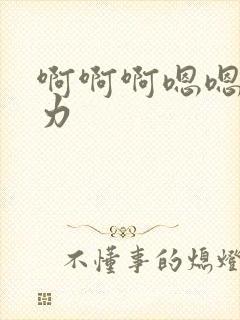 啊啊啊嗯嗯
力
不懂事的熄燈